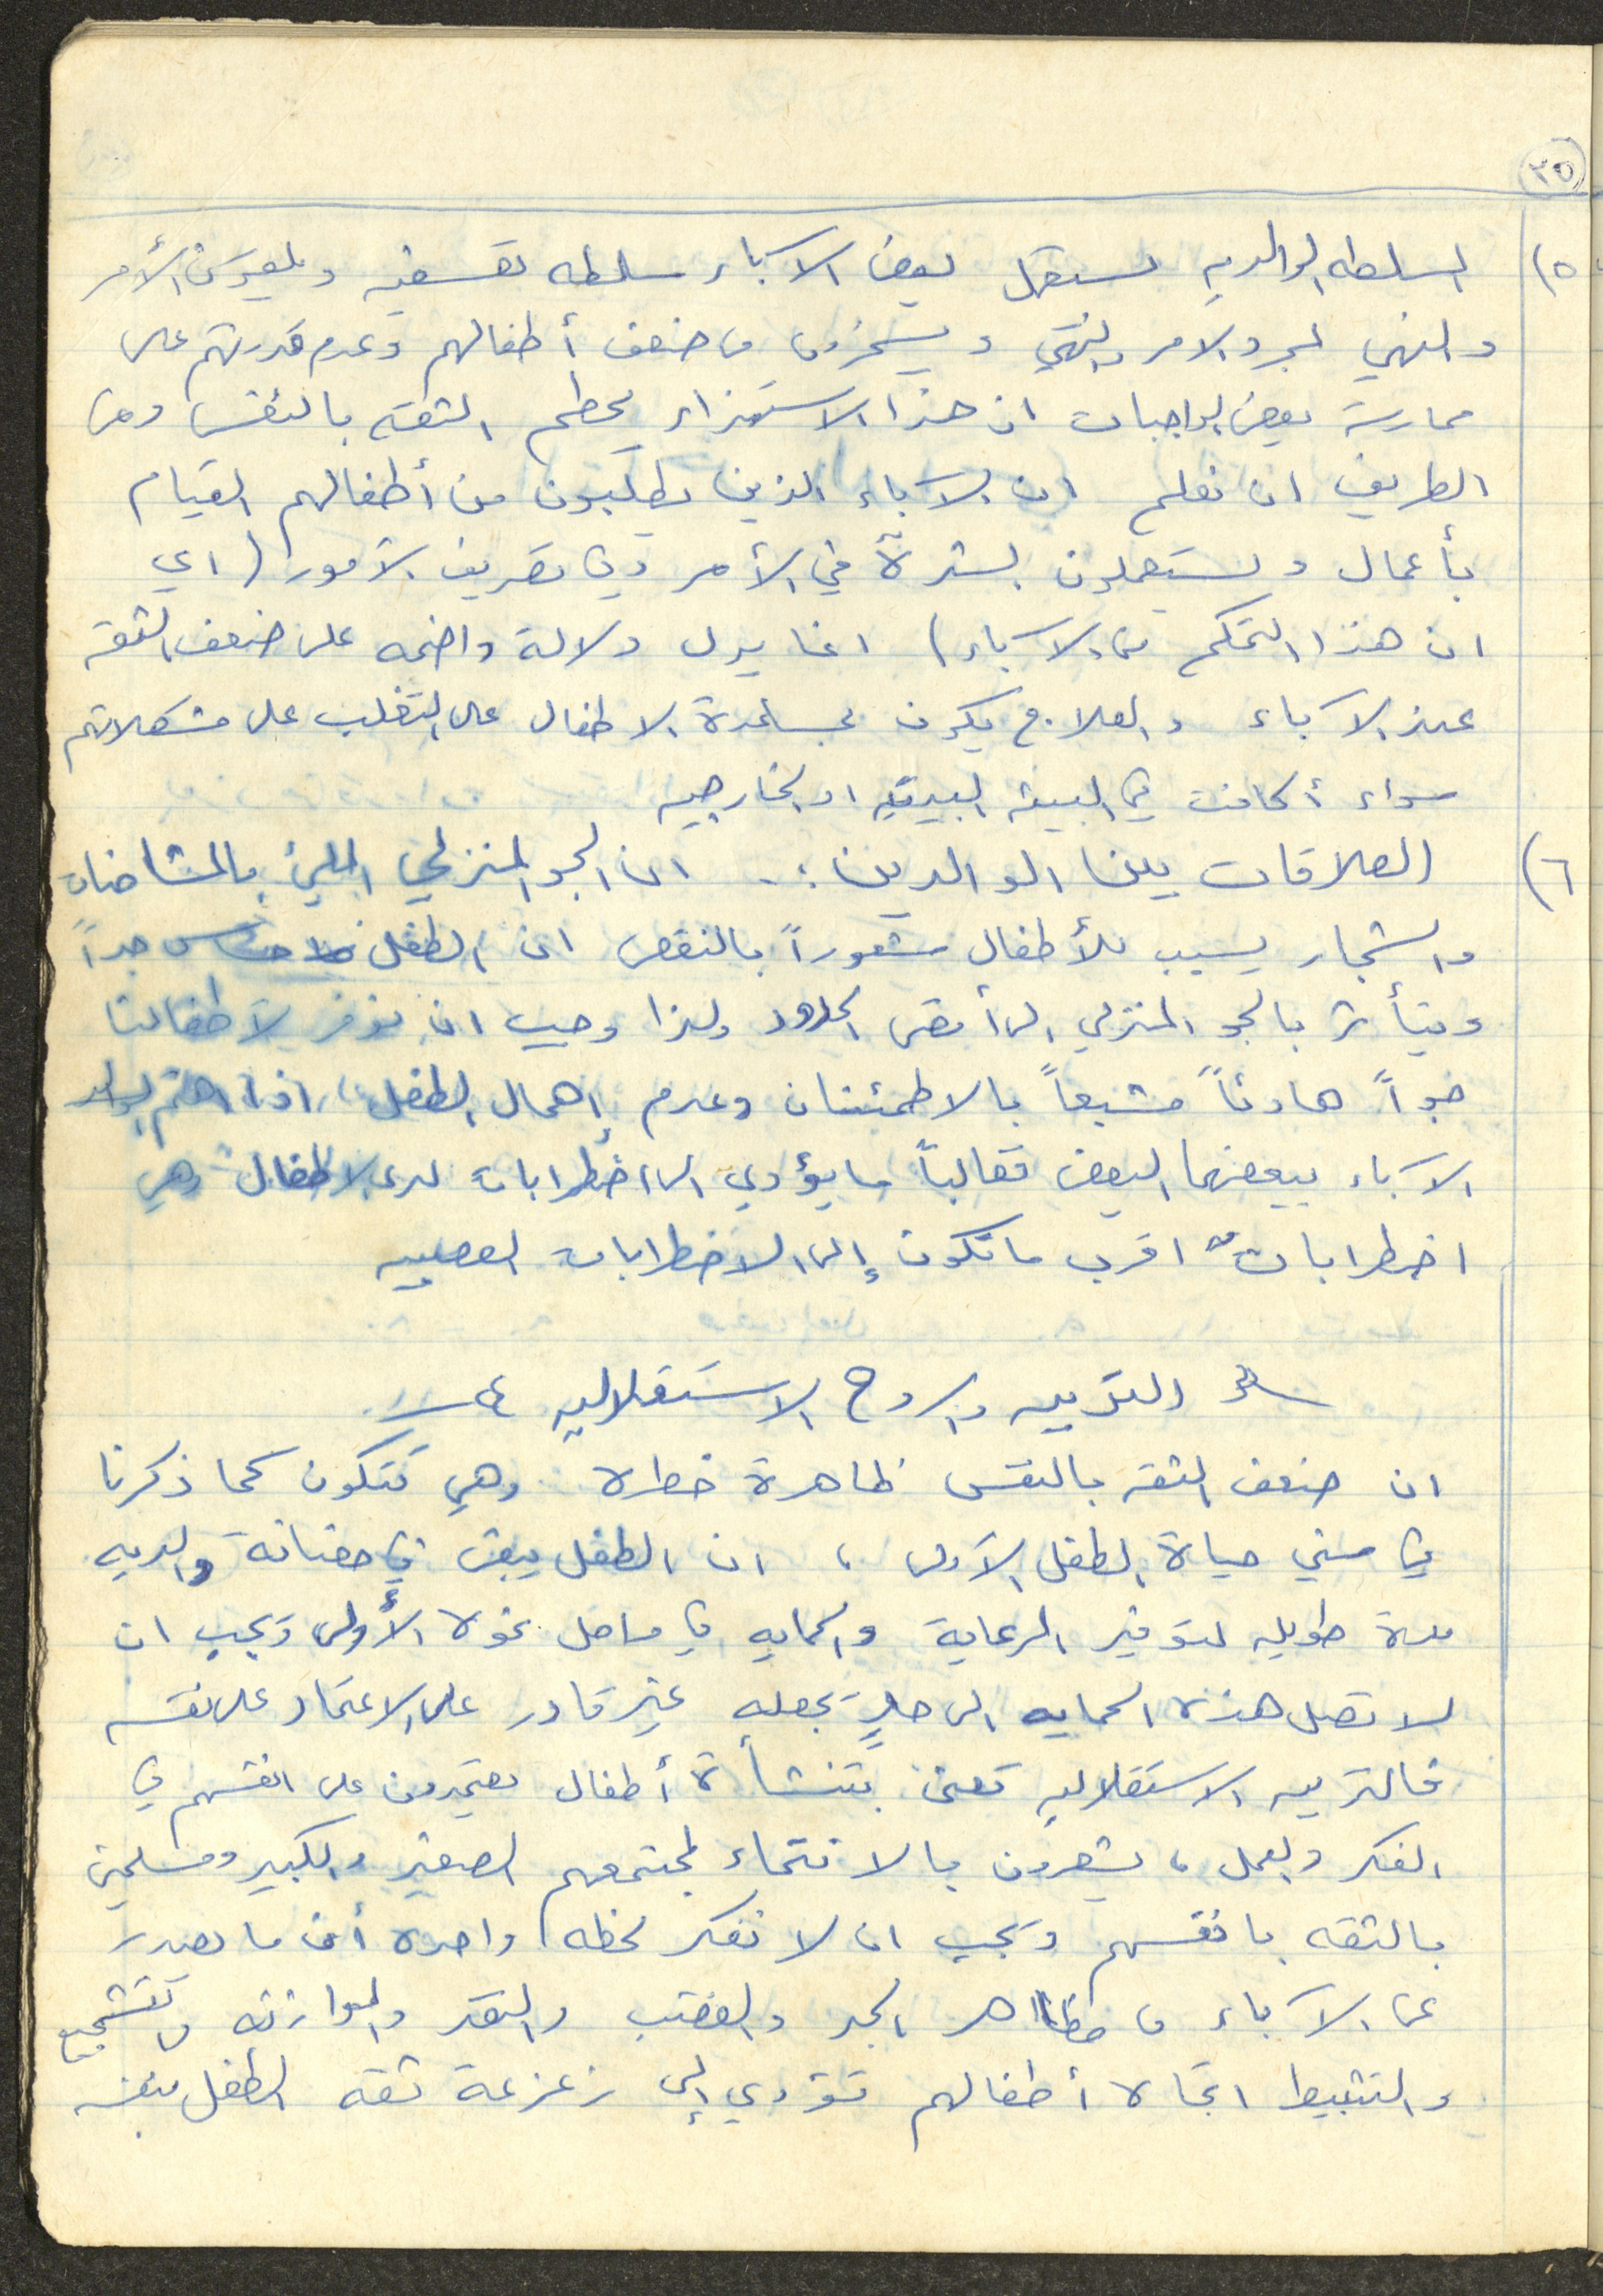 ٣٥
٥) السلطه الوالديه يستعمل بعض الآباء سلطه تعسفيه ويلعبون الأمر
والنهي لمجرد الامر والنهي ويسخرون من ضعف أطفالهم وعدم قدرتهم على
ممارسة بعض الواجبات ان هذا الاستهزاء يحطم الثقه بالنفس ومن
الطريف ان نعلم ان الآباء الذين يطلبون من أطفالهم القيام
بأعمال ويستعملون بشدة في الأمر وفي تصريف الأمور (اي
ان هذا التحكم من الآباء) انما يدل دلالة واضحه على ضعف الثقه
عند الآباء والعلاج يكون بمساعدة الاطفال على التغلب على مشكلاتهم
سواء أكانت في البيئه البيتيه او الخارجيه
٦) العلاقات بين الوالدين :- ان الجو المنزلي المليئ بالمشاحنات
والشجار يسبب للأطفال شعوراً بالنقص ان الطفل حساس جداً
ويتأثر بالجو المنزلي الى أقصى الحدود ولذا وجب ان نوفر لأطفالنا
جواً هادئاً مشبعاً بالاطمئنان وعدم إهمال الطفل، اذا اهتم
الآباء ببعضهما البعض فغالباً ما يؤدي الى اضطرابات لدى الاطفال وهي
اضطرابات اقرب ما تكون إلى الاضطرابات العصبيه
التربيه والروح الاستقلاليه
ان ضعف الثقه بالنفس ظاهرة خطره وهي تتكون كما ذكرنا
في سني حياة الطفل الأولى ، ان الطفل يبقى في حضانة والديه
مدة طويله لتوفير الرعاية والحمايه في مراحل نموه الأولى ويجب ان
لا تصل هذه الحمايه الى حدٍ تجعله غير قادر على الاعتماد على نفسه
فالتربيه الاستقلاليه تعنى بتنشأة أطفال يعتمدون على انفسهم في
الفكر والعمل ، يشعرون بالانتماء لمجتمعهم الصغير والكبير ومسلحين
بالثقه بانفسهم ويجب ان لا نفكر لحظه واحده أن ما يصدر
عن الآباء من مظاهر الجد والغضب والنقد والموازنه والتشجيع
والتثبيط اتجاه أطفالهم تؤدي إلى زعزعة ثقه الطفل بنفسه